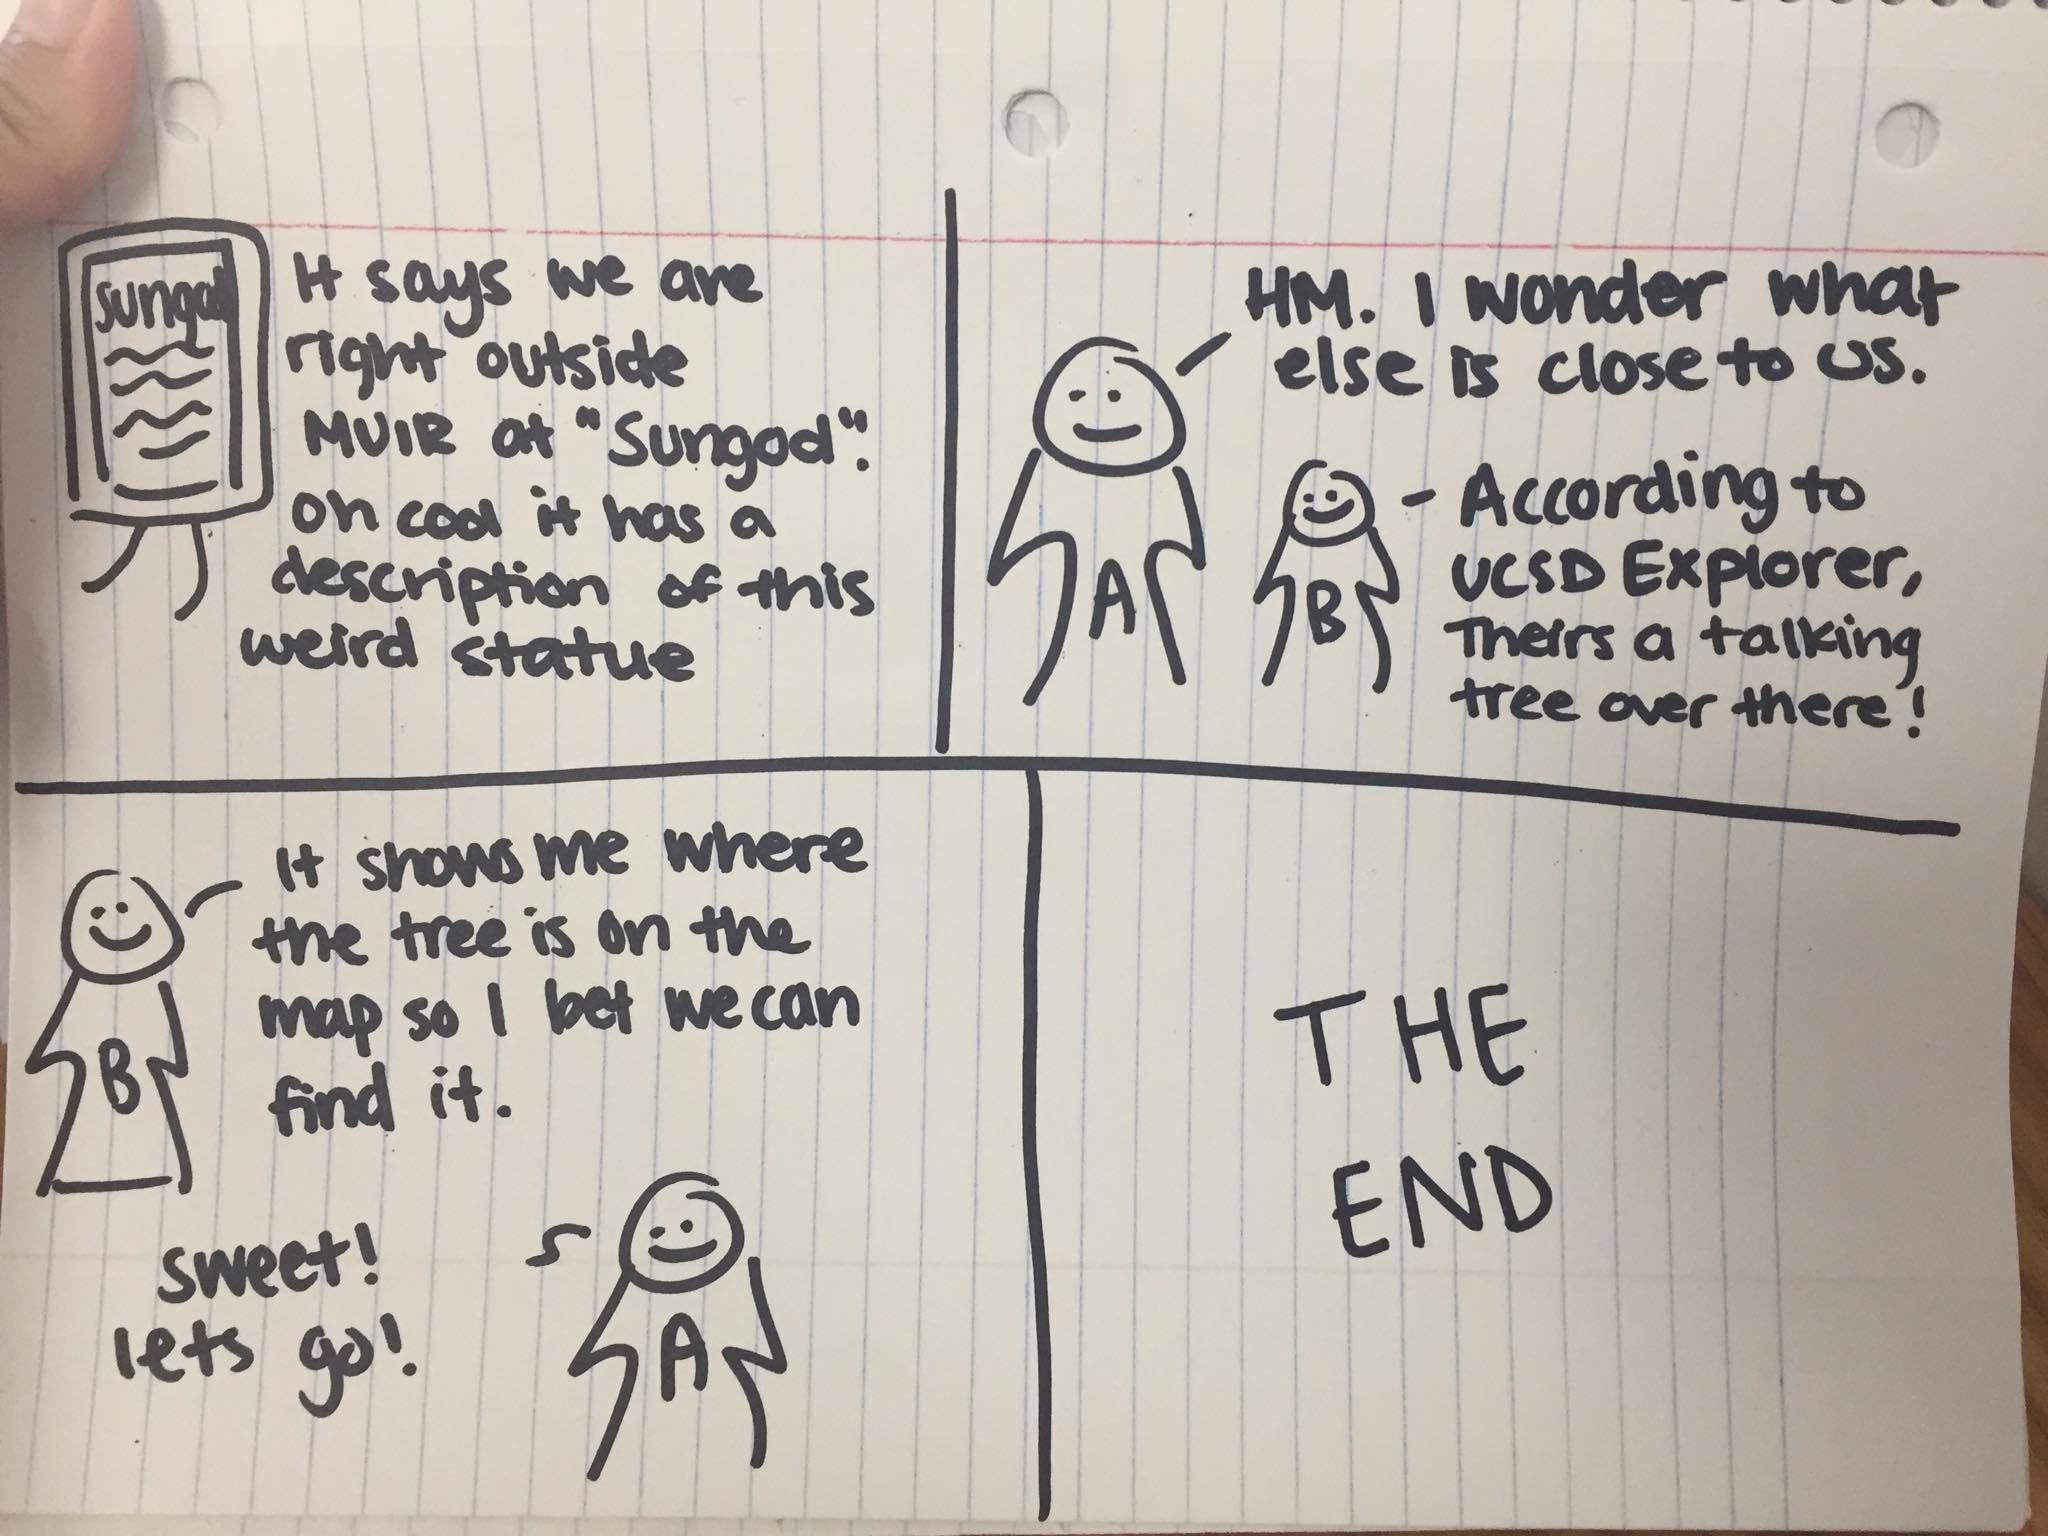 Sungod
It says we are
right outside
MUIR at "Sungod".
oh cool it has a
description of this
weird statue
HM. I wonder what
else is close to us.
According to
UCSD Explorer,
Theirs a talking
tree over there!
A
B
It shows me where
the tree is on the
map so I bet we can
find it.
B
sweet!
lets go!
A
THE
END